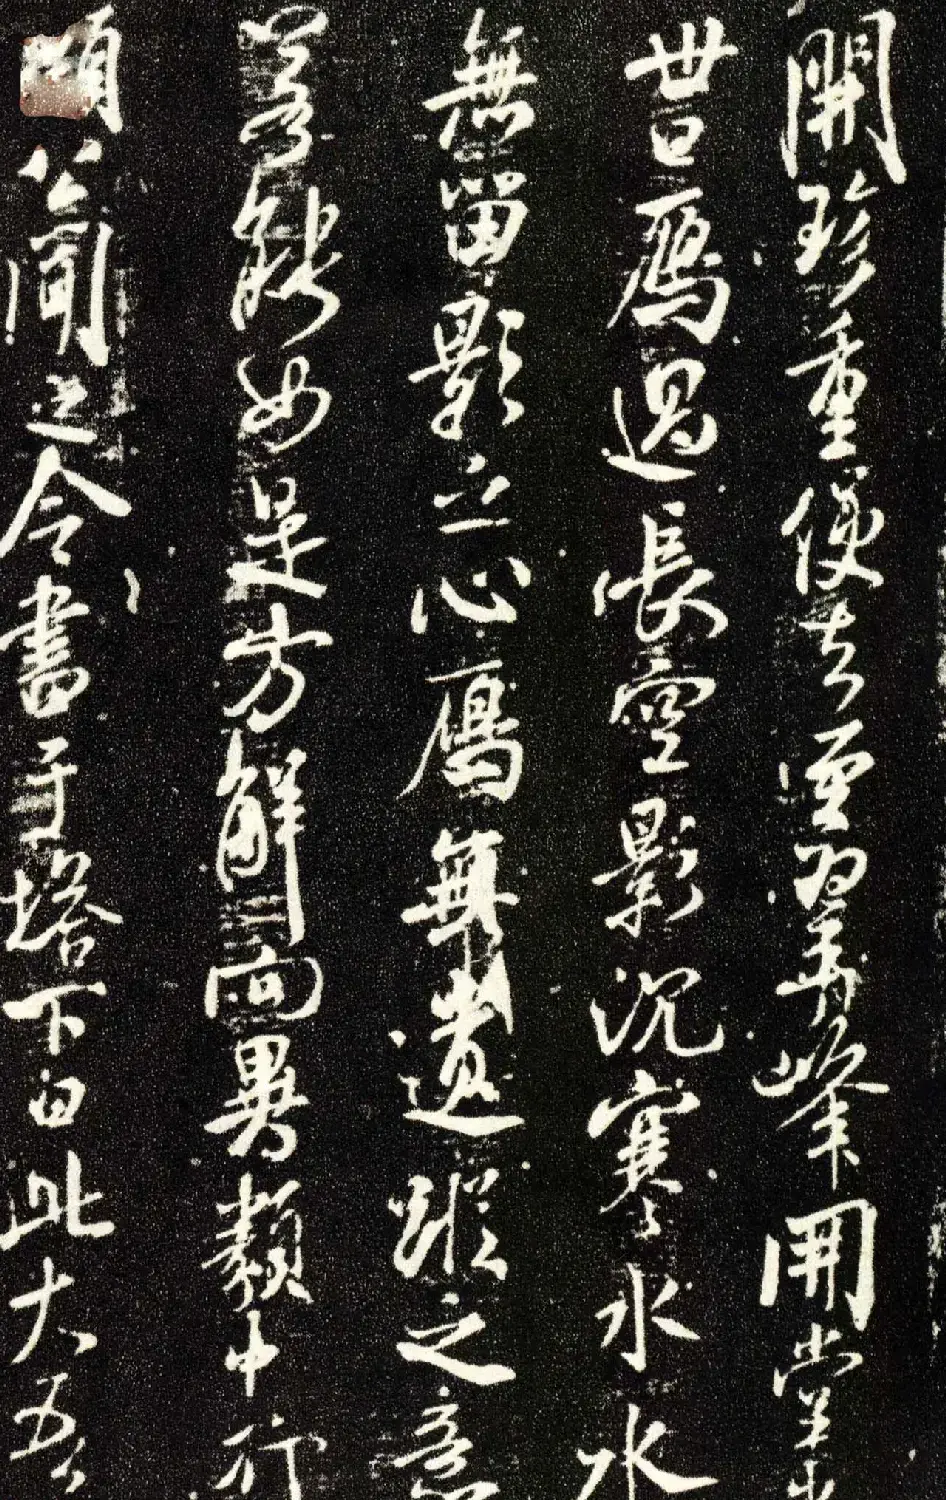 開珍重便去翠峯開堂出
世曰鴈過長空影沉寒水水
無留影之心鴈無遺蹤之意
若能如是方解向異類中行
顯公聞之令書于塔下曰此大吾